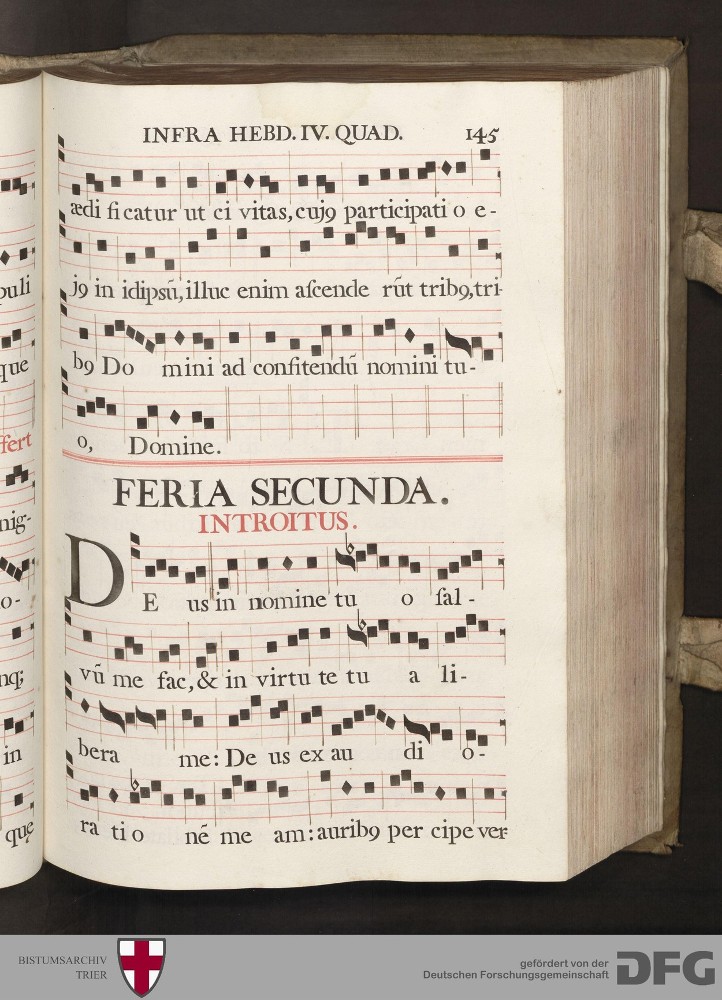 INFRA HEBD. IV. QUAD. 145
ædi ficatur ut ci vitas, cujꝯ participati o e-
puli
jꝯ in idipsũ, illuc enim aſcende rũt tribꝯ, tri-
que
bꝯ Do mini ad confitendũ nomini tu-
fert
o, Domine.
nig-
FERIA SECUNDA.
INTROITUS.
o-
DE us in nomine tu o ſal-
nq;
vũ me fac, & in virtu te tu a li-
in
bera me: De us ex au di o-
quę
ra ti o nẽ me am: auribꝯ per cipe ver
BISTUMSARCHIV
TRIER
gefördert von der
Deutschen Forschungsgemeinschaft
DFG